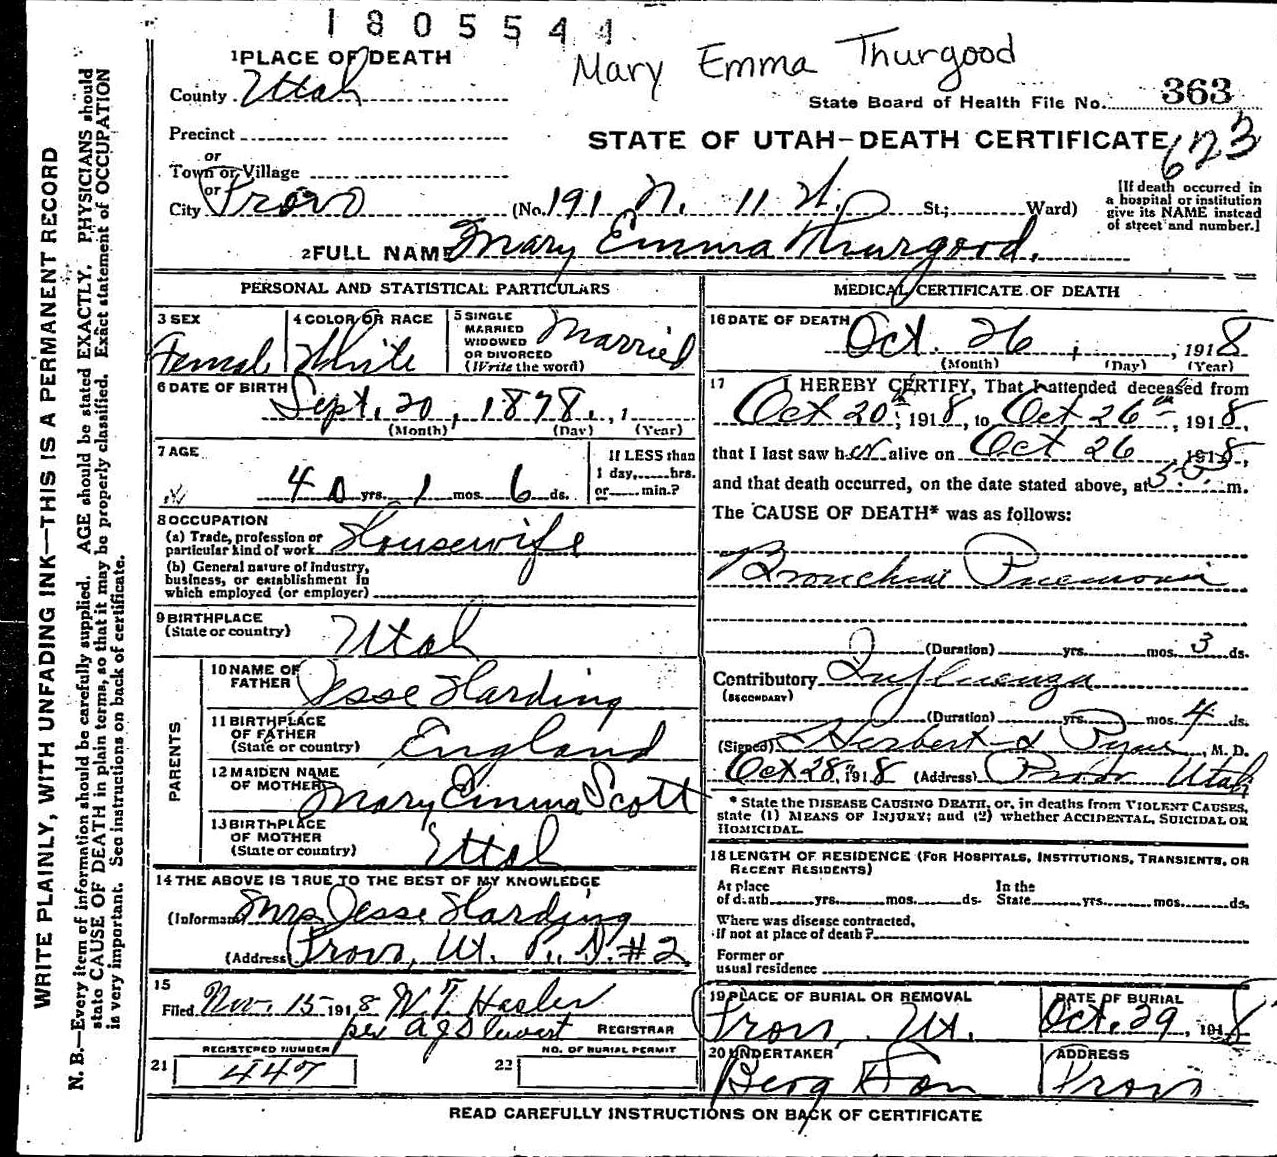 1805544
Mary Emma Thurgood
1 PLACE OF DEATH
County Utah
State Board of Health File No. 363
Precinct
STATE OF UTAH—DEATH CERTIFICATE 623
or
Town or Village
or
City Provo (No. 191 N. 11 W. St.; Ward)
[If death occurred in
a hospital or institution
give its NAME instead
of street and number.]
2 FULL NAME Mary Emma Thurgood.
PERSONAL AND STATISTICAL PARTICULARS
3 SEX Female
4 COLOR OR RACE White
5 SINGLE
MARRIED
WIDOWED
OR DIVORCED
(Write the word) Married
6 DATE OF BIRTH Sept. 20, 1878., 1
(Month) (Day) (Year)
7 AGE
40 yrs. 1 mos. 6 ds.
If LESS than
1 day, hrs.
or min.?
8 OCCUPATION
(a) Trade, profession or
particular kind of work Housewife
(b) General nature of industry,
business, or establishment in
which employed (or employer)
9 BIRTHPLACE
(State or country) Utah
PARENTS
10 NAME OF
FATHER Jesse Harding
11 BIRTHPLACE
OF FATHER
(State or country) England
12 MAIDEN NAME
OF MOTHER Mary Emma Scott
13 BIRTHPLACE
OF MOTHER
(State or country) Utah
14 THE ABOVE IS TRUE TO THE BEST OF MY KNOWLEDGE
(Informant Mrs Jesse Harding
(Address) Provo, Ut. #2
15
Filed Nov. 15 1918 REGISTRAR
per
REGISTERED NUMBER
21 447
NO. OF BURIAL PERMIT
22
MEDICAL CERTIFICATE OF DEATH
16 DATE OF DEATH Oct. 26, 1918
(Month) (Day) (Year)
17 I HEREBY CERTIFY, That I attended deceased from
Oct 20th, 1918, to Oct 26th, 1918,
that I last saw her alive on Oct 26, 1918,
and that death occurred, on the date stated above, at m.
The CAUSE OF DEATH* was as follows:
Bronchial Pneumonia
(Duration) yrs. mos. 3 ds.
Contributory Influenza
(SECONDARY)
(Duration) yrs. mos. 4 ds.
(Signed) Herbert, M. D.
Oct 28, 1918 (Address) Provo Utah
* State the DISEASE CAUSING DEATH, or, in deaths from VIOLENT CAUSES,
state (1) MEANS OF INJURY; and (2) whether ACCIDENTAL, SUICIDAL OR
HOMICIDAL.
18 LENGTH OF RESIDENCE (FOR HOSPITALS, INSTITUTIONS, TRANSIENTS, OR
RECENT RESIDENTS)
At place
of death yrs. mos. ds.
In the
State yrs. mos. ds.
Where was disease contracted,
if not at place of death?
Former or
usual residence
19 PLACE OF BURIAL OR REMOVAL
Provo, Ut.
DATE OF BURIAL
Oct. 29, 1918
20 UNDERTAKER
Berg
ADDRESS
Provo
READ CAREFULLY INSTRUCTIONS ON BACK OF CERTIFICATE
WRITE PLAINLY, WITH UNFADING INK—THIS IS A PERMANENT RECORD
N. B.—Every item of information should be carefully supplied. AGE should be stated EXACTLY. PHYSICIANS should
state CAUSE OF DEATH in plain terms, so that it may be properly classified. Exact statement of OCCUPATION
is very important. See instructions on back of certificate.